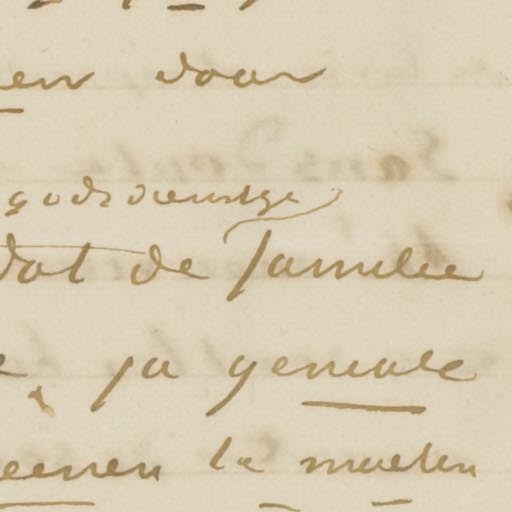 en door
godsdienstge
dat de familie
ja geniale
eenen te moeten